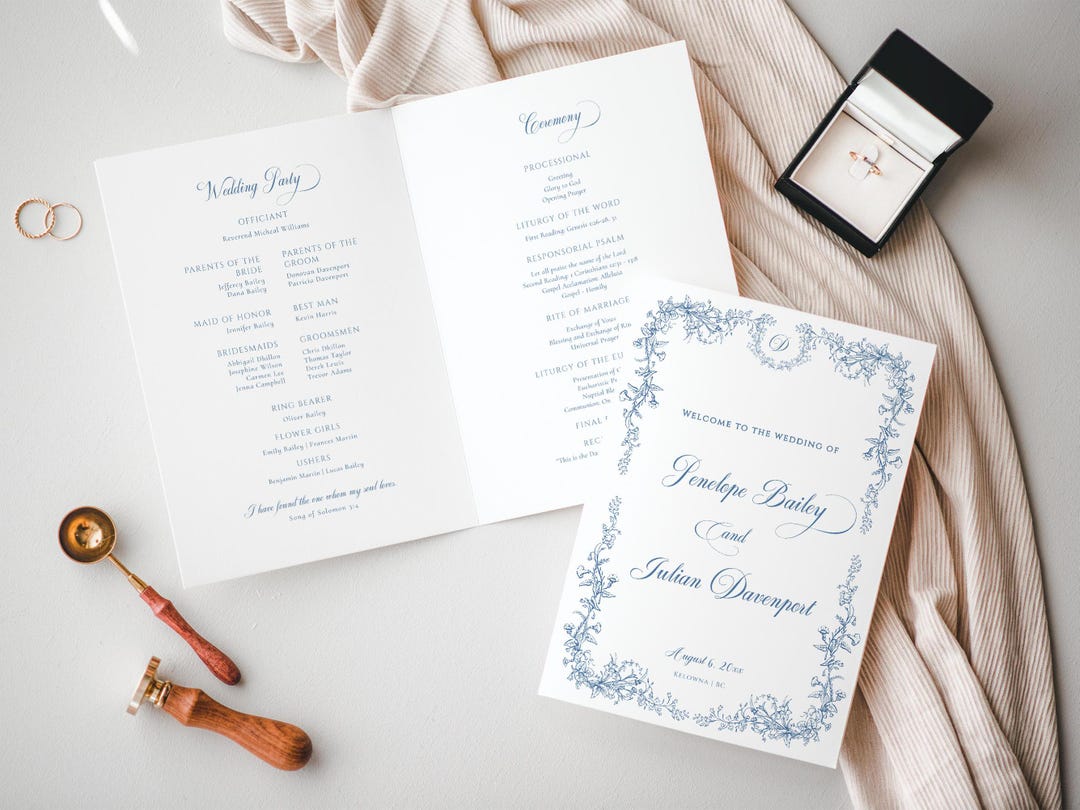 Wedding Party
OFFICIANT
Reverend Micheal Williams
PARENTS OF THE
BRIDE
Jefferey Bailey
Dana Bailey
PARENTS OF THE
GROOM
Donovan Davenport
Patricia Davenport
MAID OF HONOR
Jennifer Bailey
BEST MAN
Kevin Harris
BRIDESMAIDS
Abbigail Dhillon
Josephine Wilson
Carmen Lee
Jenna Campbell
GROOMSMEN
Chris Dhillon
Thomas Taylor
Derek Lewis
Trevor Adams
RING BEARER
Oliver Bailey
FLOWER GIRLS
Emily Bailey | Frances Martin
USHERS
Benjamin Martin | Lucas Bailey
I have found the one whom my soul loves.
Song of Solomon 3:4
Ceremony
PROCESSIONAL
Greeting
Glory to God
Opening Prayer
LITURGY OF THE WORD
First Reading: Genesis 1:26-28, 31
RESPONSORIAL PSALM
Let all praise the name of the Lord
Second Reading: 1 Corinthians 12:31 - 13:8
Gospel Acclamation: Alleluia
Gospel - Homily
RITE OF MARRIAGE
Exchange of Vows
Blessing and Exchange of Rin
Universal Prayer
LITURGY OF THE EU
Presentation of
Eucharistic P
Nuptial Ble
Communion
FINAL
REC
"This is the Da
D
WELCOME TO THE WEDDING OF
Penelope Bailey
and
Julian Davenport
August 6,
KELOWNA | BC